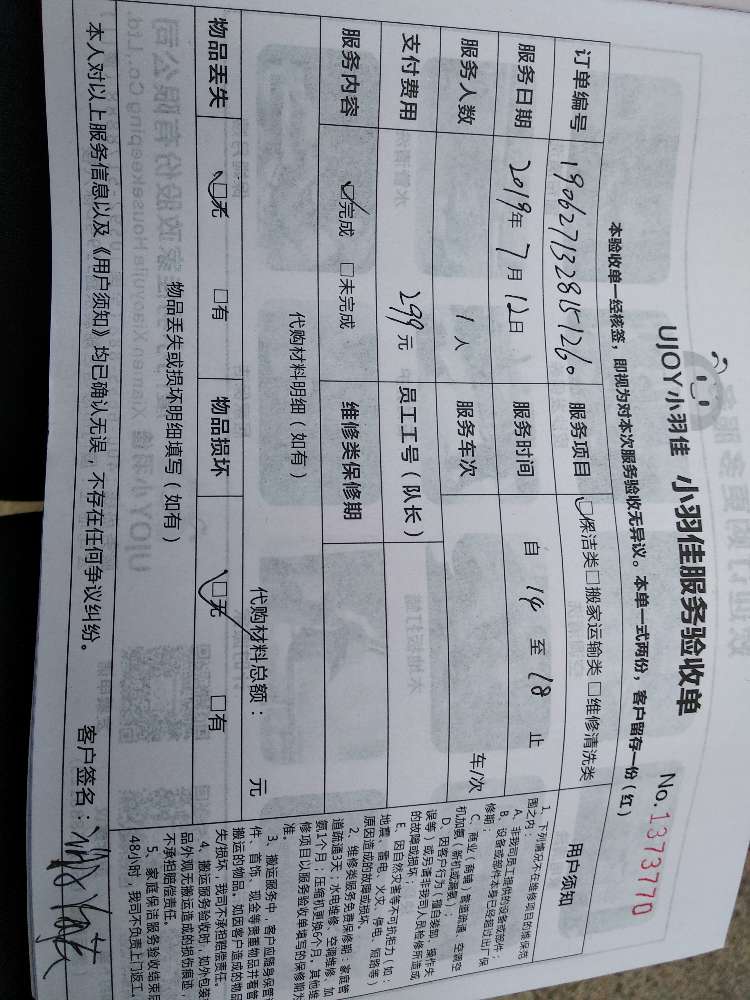 UJOY小羽佳 小羽佳服务验收单
No.1373770
本验收单一经核签，即视为对本次服务验收无异议。本单一式两份，客户留存一份（红）
订单编号 190627132815126 服务项目 □保洁类□搬家运输类□维修清洗类
服务日期 2019年7月12日 服务时间 自 14 至 18 止
服务人数 1人 服务车次 车/次
支付费用 299元 员工工号（队长）
服务内容 ☑完成 □未完成 维修类保修期
代购材料明细（如有） 代购材料总额： 元
物品丢失 ☑无 □有 物品损坏 ☑无 □有
物品丢失或损坏明细填写（如有）
本人对以上服务信息以及《用户须知》均已确认无误，不存在任何争议纠纷。
客户签名：
用户须知
1、下列情况不在维修项目的维保范
围之内：
A、非我司员工提供的设备或部件；
B、设备或部件本身已经超过出厂保
修期；
C、商业（商铺）管道疏通、空调充
机加氨（新机或漏氨）；
D、因客户行为（擅自装卸、操作失
误等）或另请非我司人员检修所造成
的故障或损坏；
E、因自然灾害等不可抗拒力（如：
地震、雷电、火灾、停电、短路等）
原因造成的故障或损坏。
2、维修类服务免费保修期：家庭管
道疏通3天；水电维修、空调维修、加
氨1个月；压缩机更换6个月。其他维
修项目以服务验收单填写的保修期为
准。
3、搬运服务中，客户应随身保管证
件、首饰、现金等贵重物品并看管
搬运的物品。如因客户造成的物品
失/损坏，我司不承担赔偿责任。
4、搬运服务验收时，如外包装
品外观无搬运造成的损伤痕迹，
不承担赔偿责任。
5、家庭保洁服务验收结束后
48小时，我司不负责上门返工。